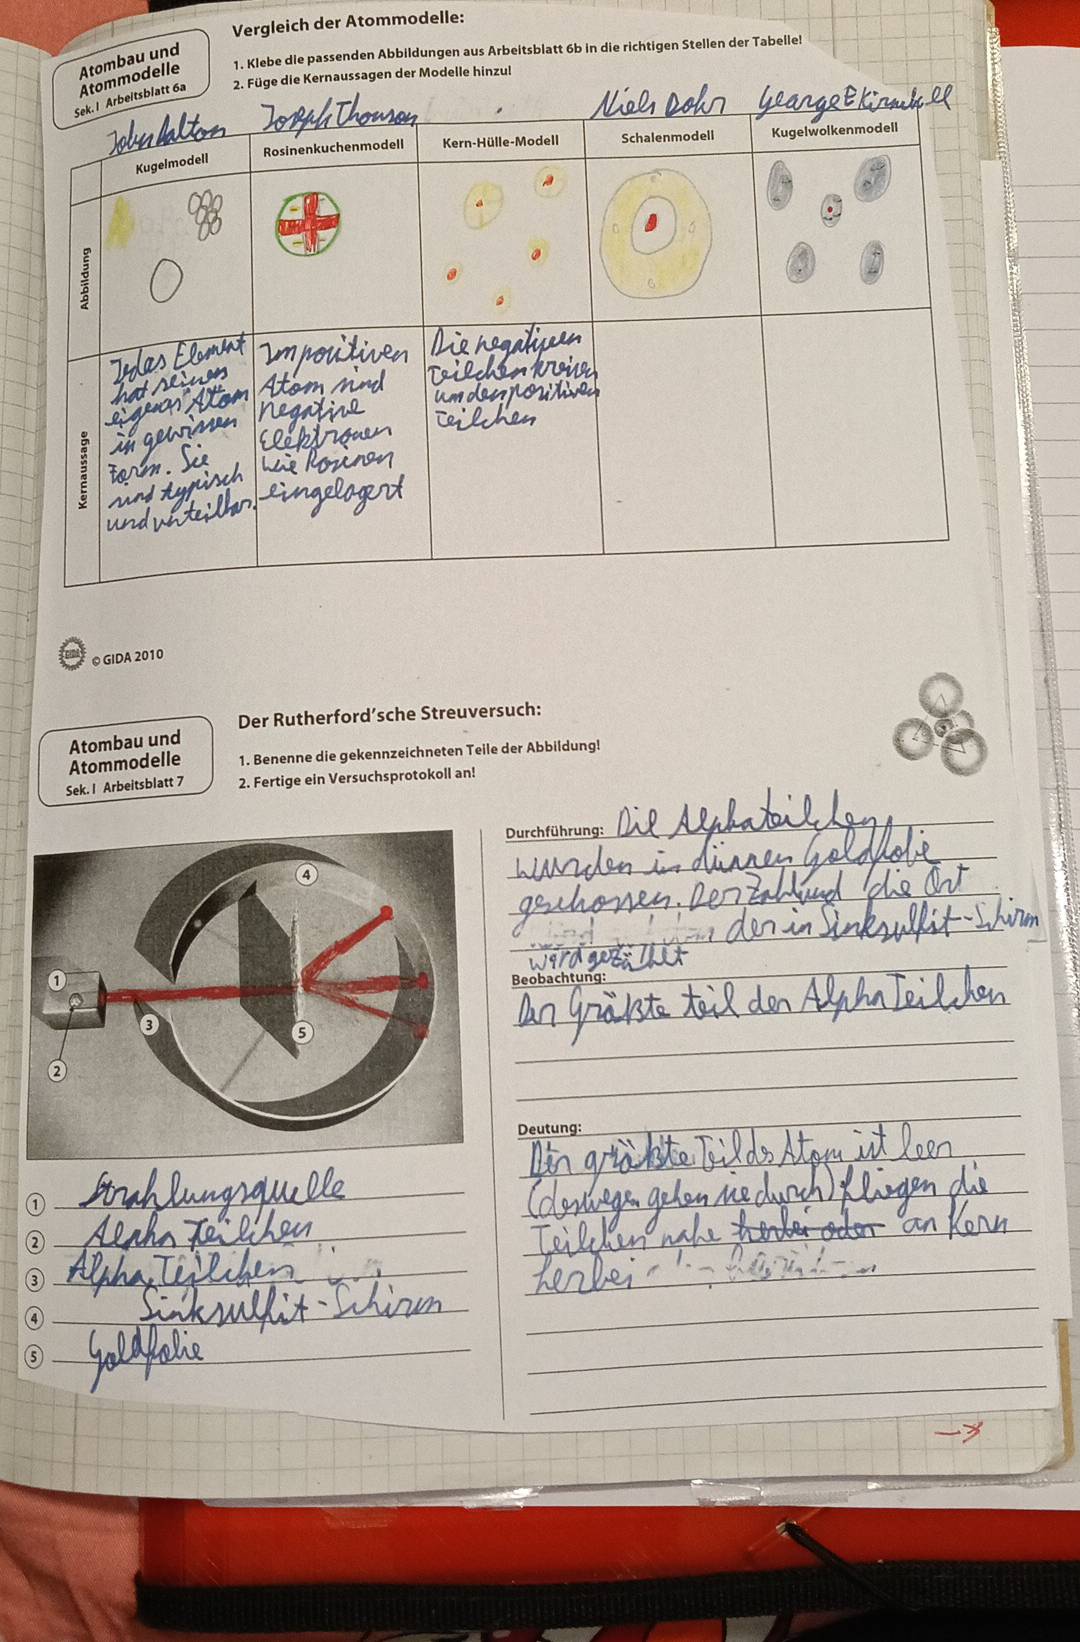 Atombau und
Atommodelle
Sek. I Arbeitsblatt 6a
Vergleich der Atommodelle:
1. Klebe die passenden Abbildungen aus Arbeitsblatt 6b in die richtigen Stellen der Tabelle!
2. Füge die Kernaussagen der Modelle hinzu!
John Dalton
Joseph Thomson
Niels Bohr
George E Kimball
Kugelmodell
Rosinenkuchenmodell
Kern-Hülle-Modell
Schalenmodell
Kugelwolkenmodell
Abbildung
Kernaussage
Jedes Element
hat seinen
eigenes Atom
in gewissen
Form. Sie
sind typisch
und unteilbar.
Im positiven
Atom sind
negative
Elektronen
wie Rosinen
eingelagert
Die negativen
Teilchen kreisen
um den positiven
Teilchen
GIDA
© GIDA 2010
Atombau und
Atommodelle
Sek. I Arbeitsblatt 7
Der Rutherford'sche Streuversuch:
1. Benenne die gekennzeichneten Teile der Abbildung!
2. Fertige ein Versuchsprotokoll an!
1
2
3
4
5
1 Strahlungsquelle
2 Alpha Teilchen
3 Alpha Teilchen
4 Sinksulfit-Schirm
5 Goldfolie
Durchführung: Die Alphateilchen
wurden in dünnen Goldfolie
geschossen. Der Zahl und die Ort
der in Sinksulfit-Schirm
werd gezählt
Beobachtung:
Der Größte teil der Alpha Teilchen
Deutung:
Der größte Teil des Atom ist leer
(deswegen gehen sie durch) fliegen die
Teilchen nahe herbei oder an Kern
herbei